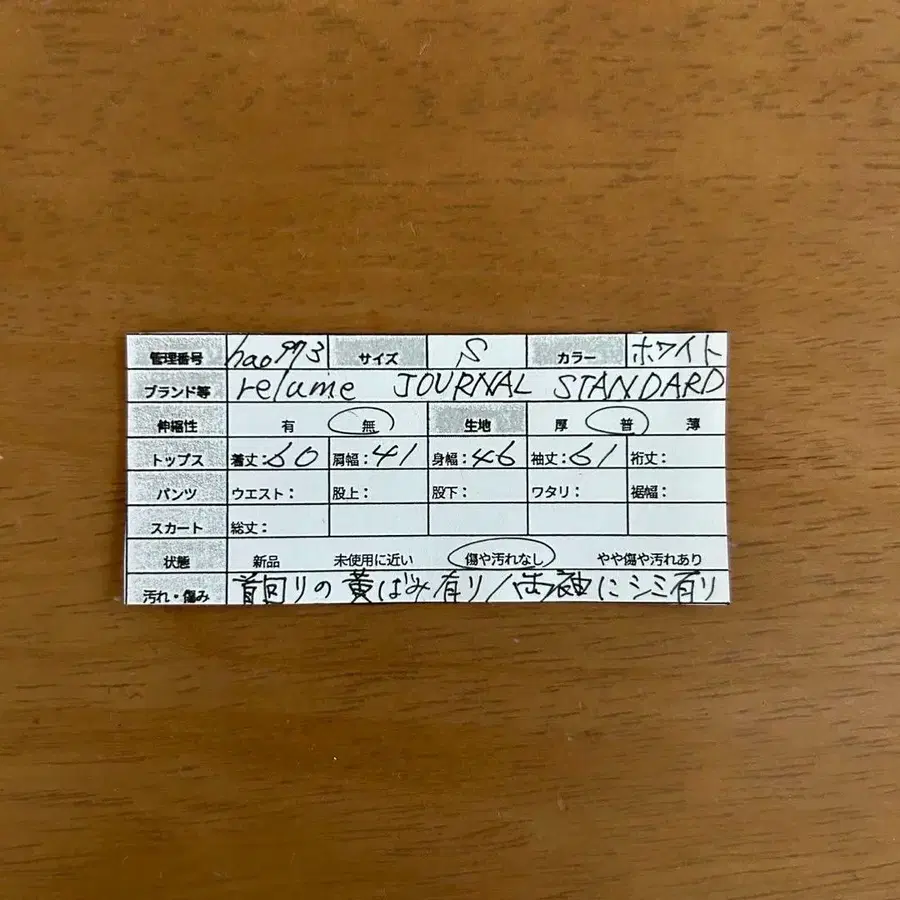 管理番号 hao973 サイズ S カラー ホワイト
ブランド等 relume JOURNAL STANDARD
伸縮性 有 無 生地 厚 普 薄
トップス 着丈：60 肩幅：41 身幅：46 袖丈：61 裄丈：
パンツ ウエスト： 股上： 股下： ワタリ： 裾幅：
スカート 総丈：
状態 新品 未使用に近い 傷や汚れなし やや傷や汚れあり
汚れ・傷み 首回りの黄ばみ有り/右袖にシミ有り